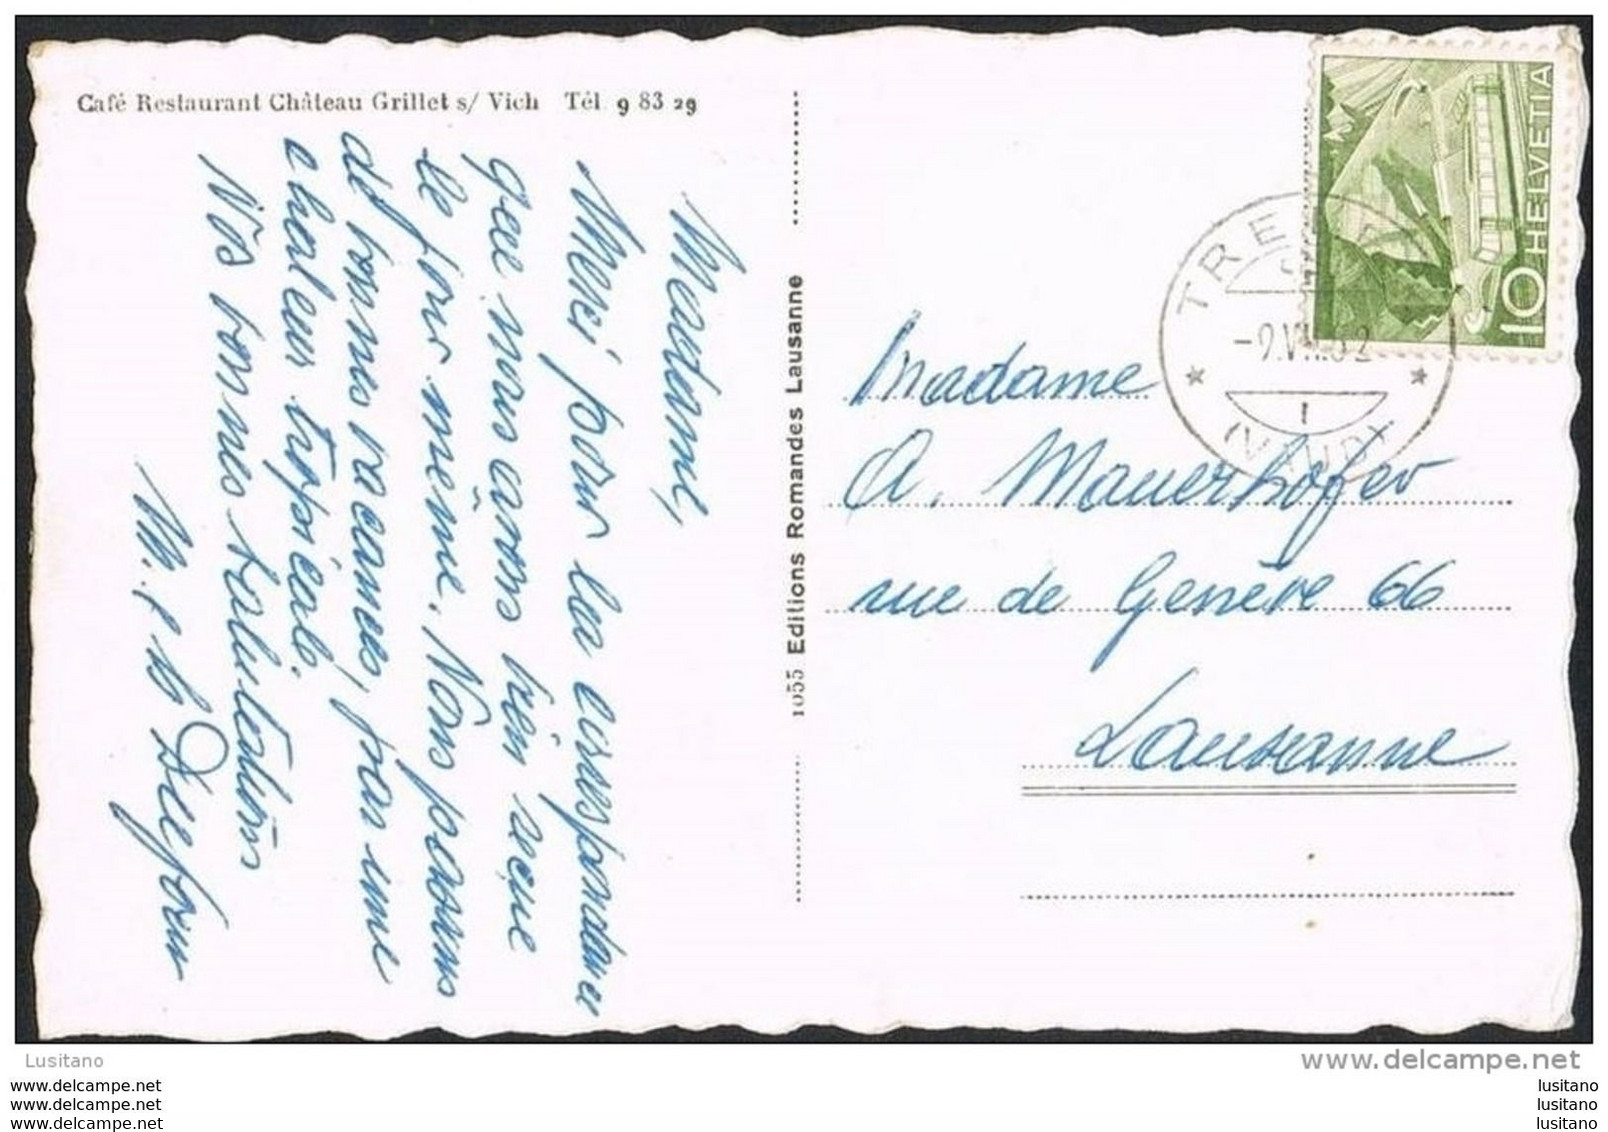 Café Restaurant Château Grillet s/ Vich Tél 9 83 29
Madame,
Merci pour les correspondance
que nous avons bien reçue
le jour même. Nous passons
de bonnes vacances, par une
chaleur tropicale.
Nos bonnes salutations
M. & Dufour
1055 Editions Romandes Lausanne
HELVETIA
10
(VAUD)
Madame
A. Mauerhofer
rue de Genève 66
Lausanne
Lusitano
www.delcampe.net
www.delcampe.net
www.delcampe.net
www.delcampe.net
lusitano
lusitano
lusitano